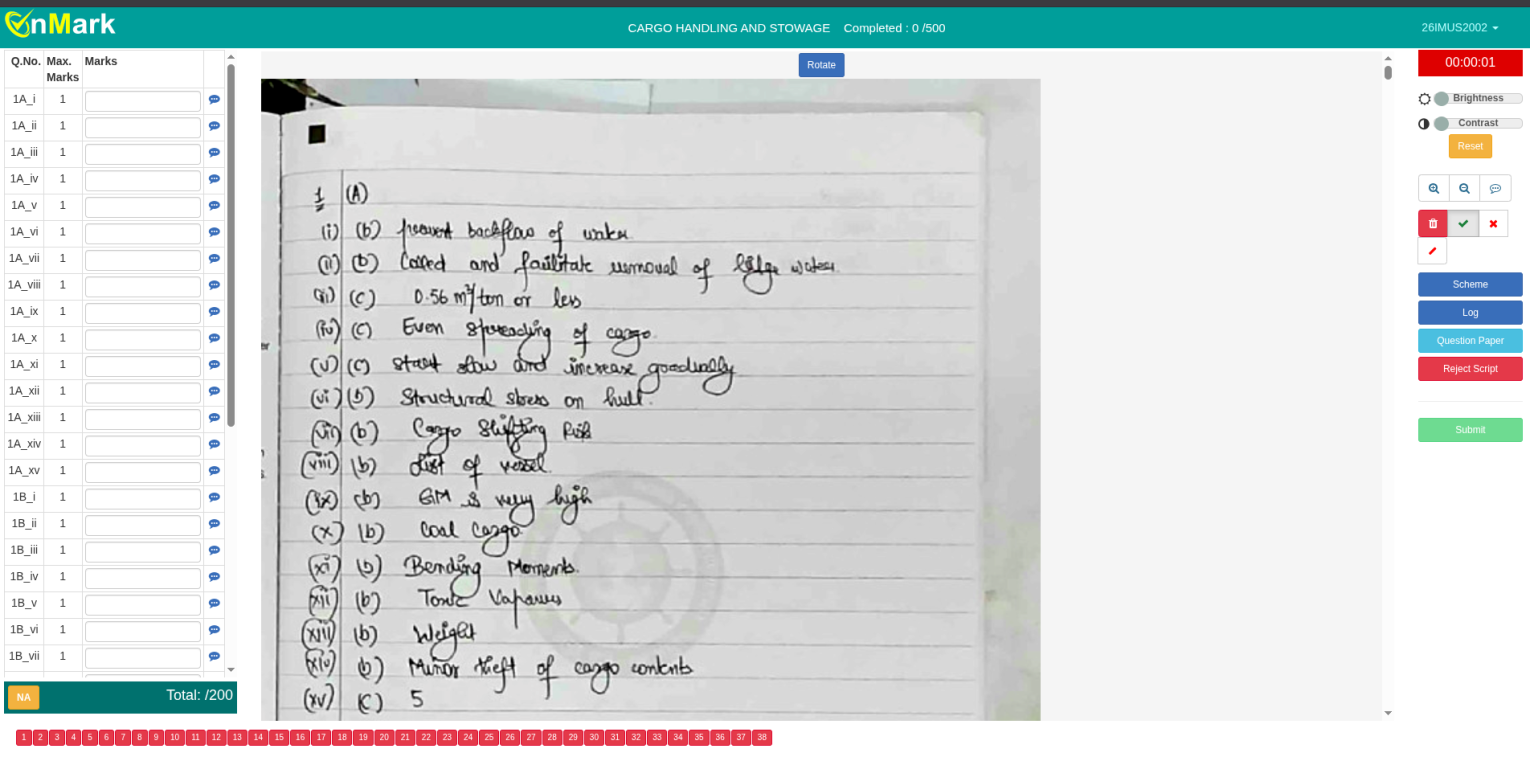 OnMark
CARGO HANDLING AND STOWAGE Completed : 0 /500
26IMUS2002
Q.No. Max. Marks Marks
1A_i 1
1A_ii 1
1A_iii 1
1A_iv 1
1A_v 1
1A_vi 1
1A_vii 1
1A_viii 1
1A_ix 1
1A_x 1
1A_xi 1
1A_xii 1
1A_xiii 1
1A_xiv 1
1A_xv 1
1B_i 1
1B_ii 1
1B_iii 1
1B_iv 1
1B_v 1
1B_vi 1
1B_vii 1
NA Total: /200
Rotate
1 (A)
(i) (b) prevent backflow of water
(ii) (b) and failitate removal of bilge water
(iii) (c) 0.56 m³/ton or less
(iv) (c) Even spreading of cargo.
(v) (c) start slow and increase goodually
(vi) (b) Structural stress on hull.
(vii) (b) Cargo Shifting Risk
(viii) (b) List of vessel.
(ix) (b) GM is very high
(x) (b) Coal Cargo
(xi) (b) Bending Moments.
(xii) (b) Toxic Vapours
(xiii) (b) Weight
(xiv) (b) Minor theft of cargo contents
(xv) (c) 5
00:00:01
Brightness
Contrast
Reset
Scheme
Log
Question Paper
Reject Script
Submit
1 2 3 4 5 6 7 8 9 10 11 12 13 14 15 16 17 18 19 20 21 22 23 24 25 26 27 28 29 30 31 32 33 34 35 36 37 38